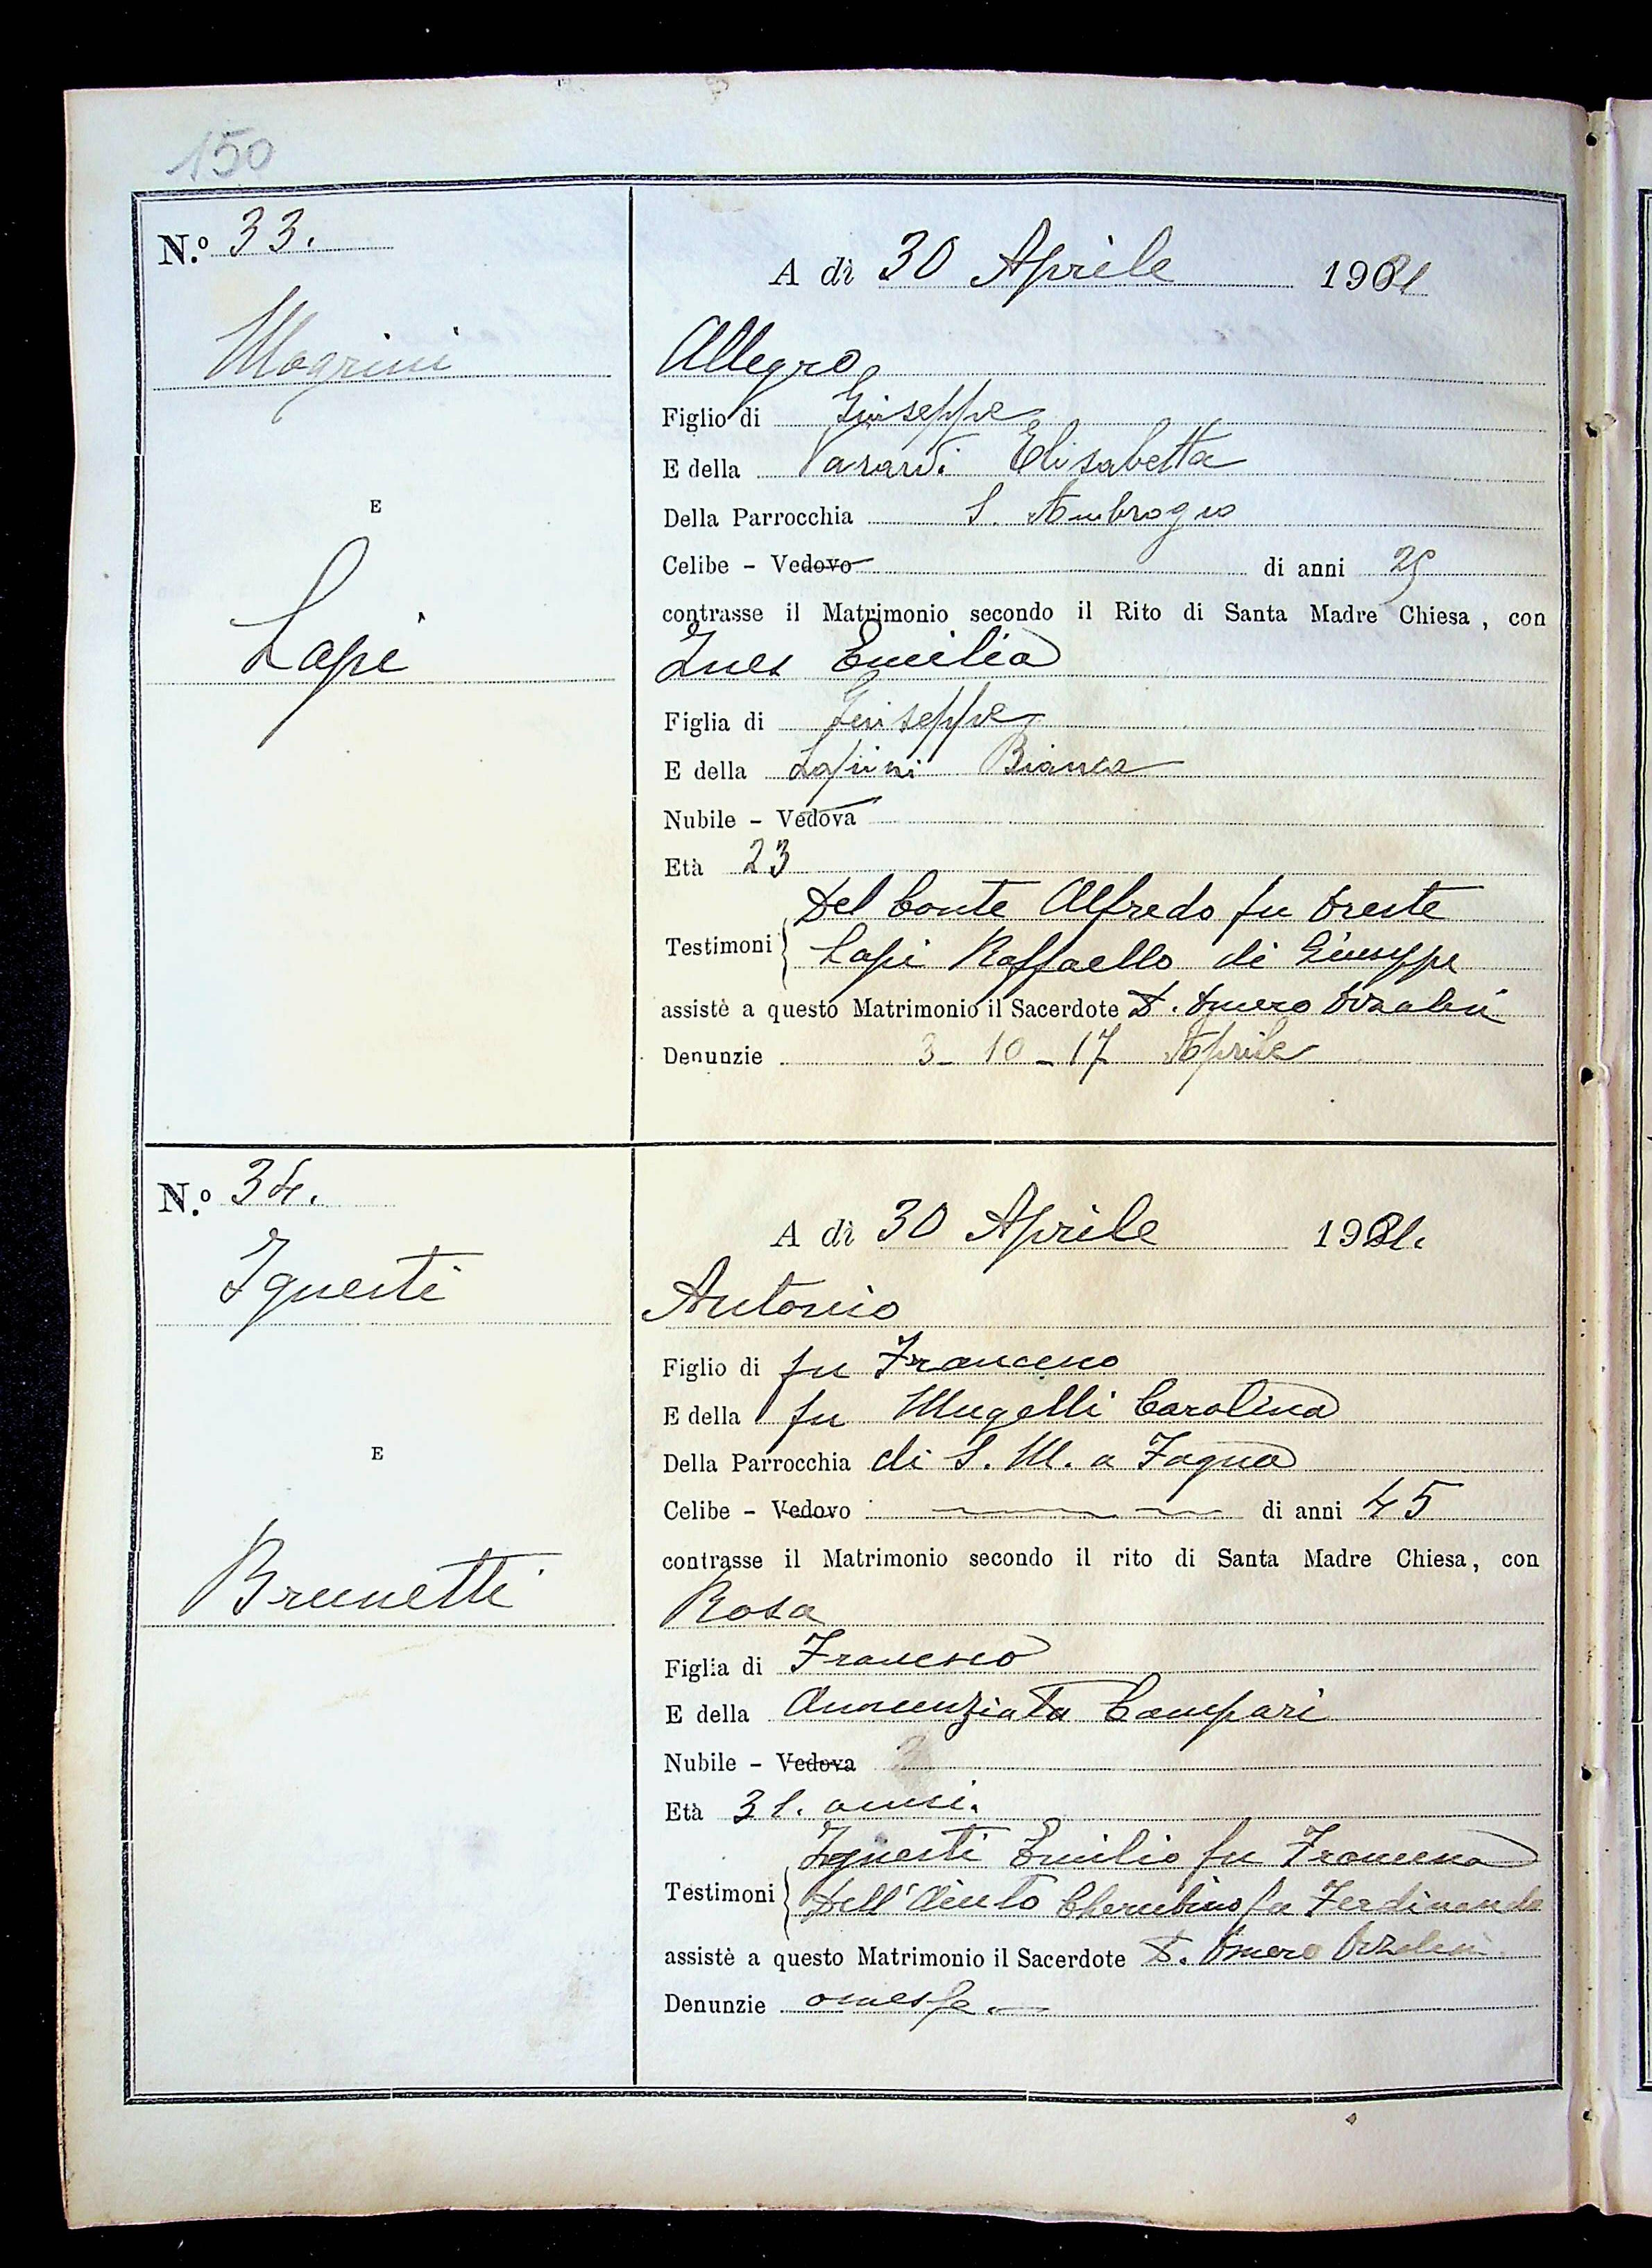 150
N.º 33.
A dì 30 Aprile 1921
Magrini
Allegro
Figlio di Giuseppe
E della Elisabetta
E
Della Parrocchia S. Ambrogio
Celibe - Vedovo di anni 25
contrasse il Matrimonio secondo il Rito di Santa Madre Chiesa, con
Lapi
Ines Emilia
Figlia di Giuseppe
E della Lapini Bianca
Nubile - Vedova
Età 23
Testimoni
Del Conte Alfredo fu Oreste
Lapi Raffaello di Giuseppe
assistè a questo Matrimonio il Sacerdote D. Omero Orzalesi
Denunzie 3 - 10 - 17 Aprile
N.º 34.
A dì 30 Aprile 1921.
Ignesti
Antonio
Figlio di fu Francesco
E della fu Mugelli Carolina
E
Della Parrocchia di S. M. a Fagna
Celibe - Vedovo di anni 45
contrasse il Matrimonio secondo il rito di Santa Madre Chiesa, con
Brunetti
Rosa
Figlia di Francesco
E della Annunziata Campari
Nubile - Vedova
Età 31. anni.
Testimoni
Ignesti Emilio fu Francesco
Dell'Aiuto Cherubino fu Ferdinando
assistè a questo Matrimonio il Sacerdote D. Omero Orzalesi
Denunzie omesse.